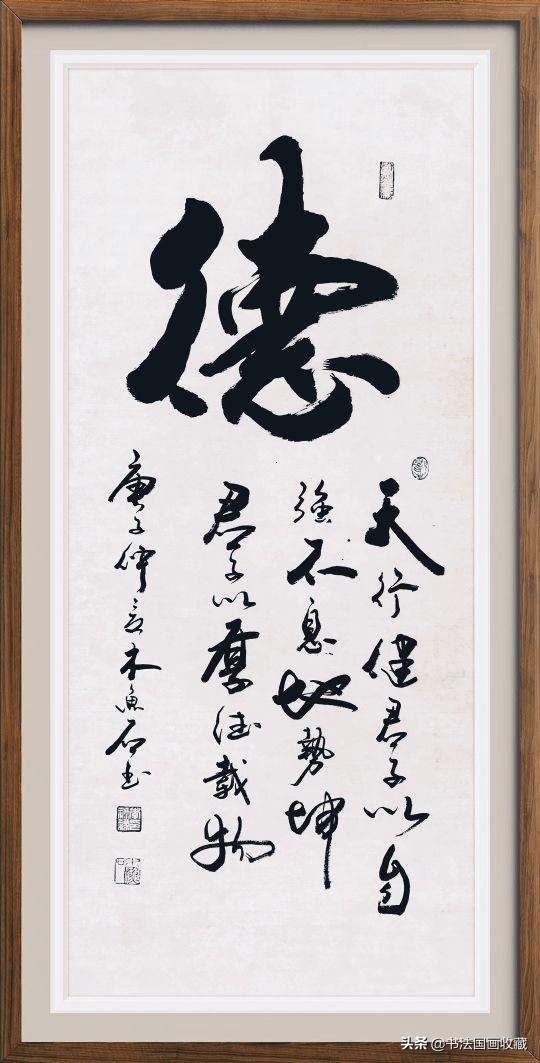 德
天行健君子以自
強不息地勢坤
君子以厚德載物
庚子仲言木魚石书
头条 @书法国画收藏